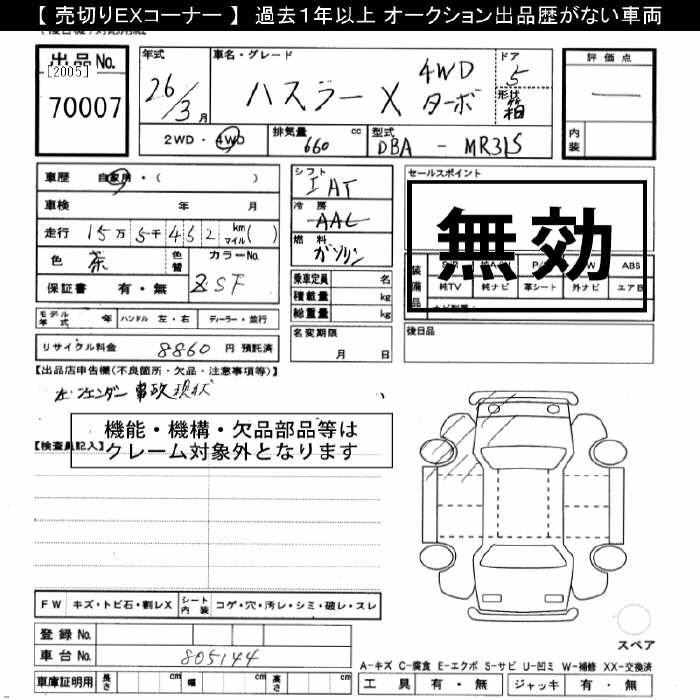 【 売切りEXコーナー 】 過去1年以上 オークション出品歴がない車両
出品 No.
[2005]
70007
年式
26/3 月
車名・グレード
ハスラー X 4WD ターボ
ドア
5
形状
箱
評価点
内装
2WD・4WD
排気量
660 cc
型式
DBA - MR31S
車歴 自家用・( )
車検 年 月
走行 15万5千452 km( ) マイル
色 茶 色替 カラーNo.
ZSF
保証書 有・無
シフト
IAT
冷房
AAC
燃料
ガソリン
乗車定員 名
積載量 kg
総重量 kg
セールスポイント
無効
装備品
ABS
純TV 純ナビ 革シート 外ナビ エアB
モデル年式 年 ハンドル 左・右 ディーラー・並行
リサイクル料金 8860 円 預託済
名変期限
月 日
後日品
【出品店申告欄(不良箇所・欠品・注意事項等)】
左フェンダー 事故現状
【検査員記入】
機能・機構・欠品部品等は
クレーム対象外となります
FW キズ・トビ石・割レX シート内装 コゲ・穴・汚レ・シミ・破レ・スレ
登録 No.
車台 No. 805144
車庫証明用 長さ cm 幅 cm 高さ cm
スペア
A-キズ C-腐食 E-エクボ S-サビ U-凹ミ W-補修 XX-交換済
工具 有・無 ジャッキ 有・無